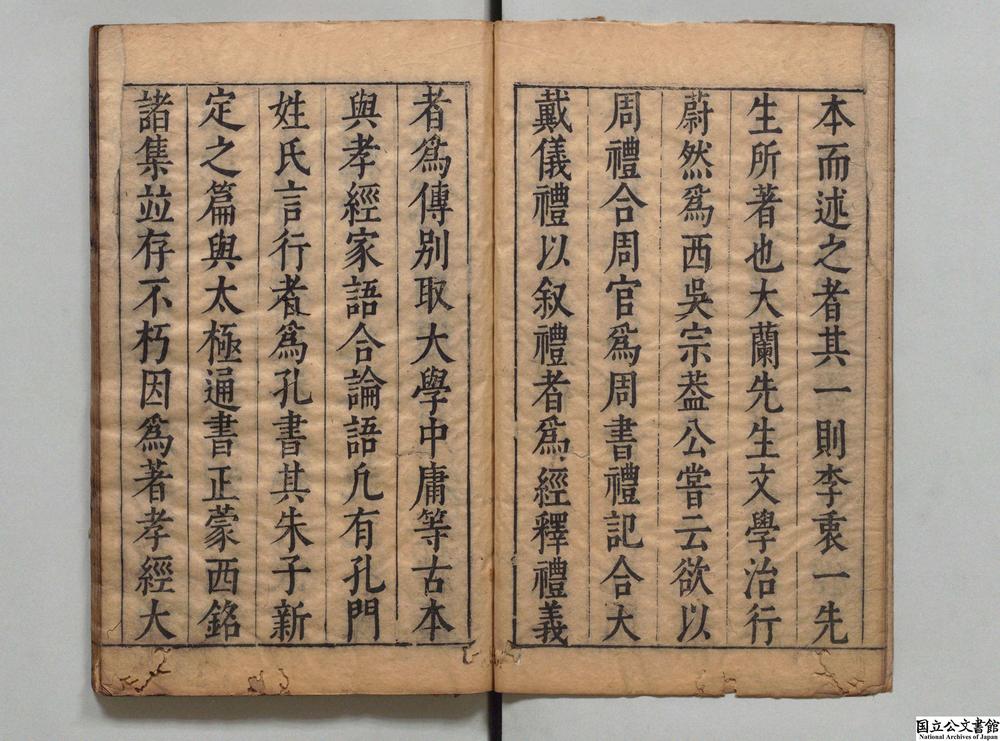 本而述之者其一則李衷一先
生所著也大蘭先生文學治行
蔚然爲西吳宗葢公嘗云欲以
周禮合周官爲周書禮記合大
戴儀禮以叙禮者爲經釋禮義
者爲傳别取大學中庸等古本
與孝經家語合論語凡有孔門
姓氏言行者爲孔書其朱子新
定之篇與太極通書正蒙西銘
諸集並存不朽因爲著孝經大
国立公文書館
National Archives of Japan